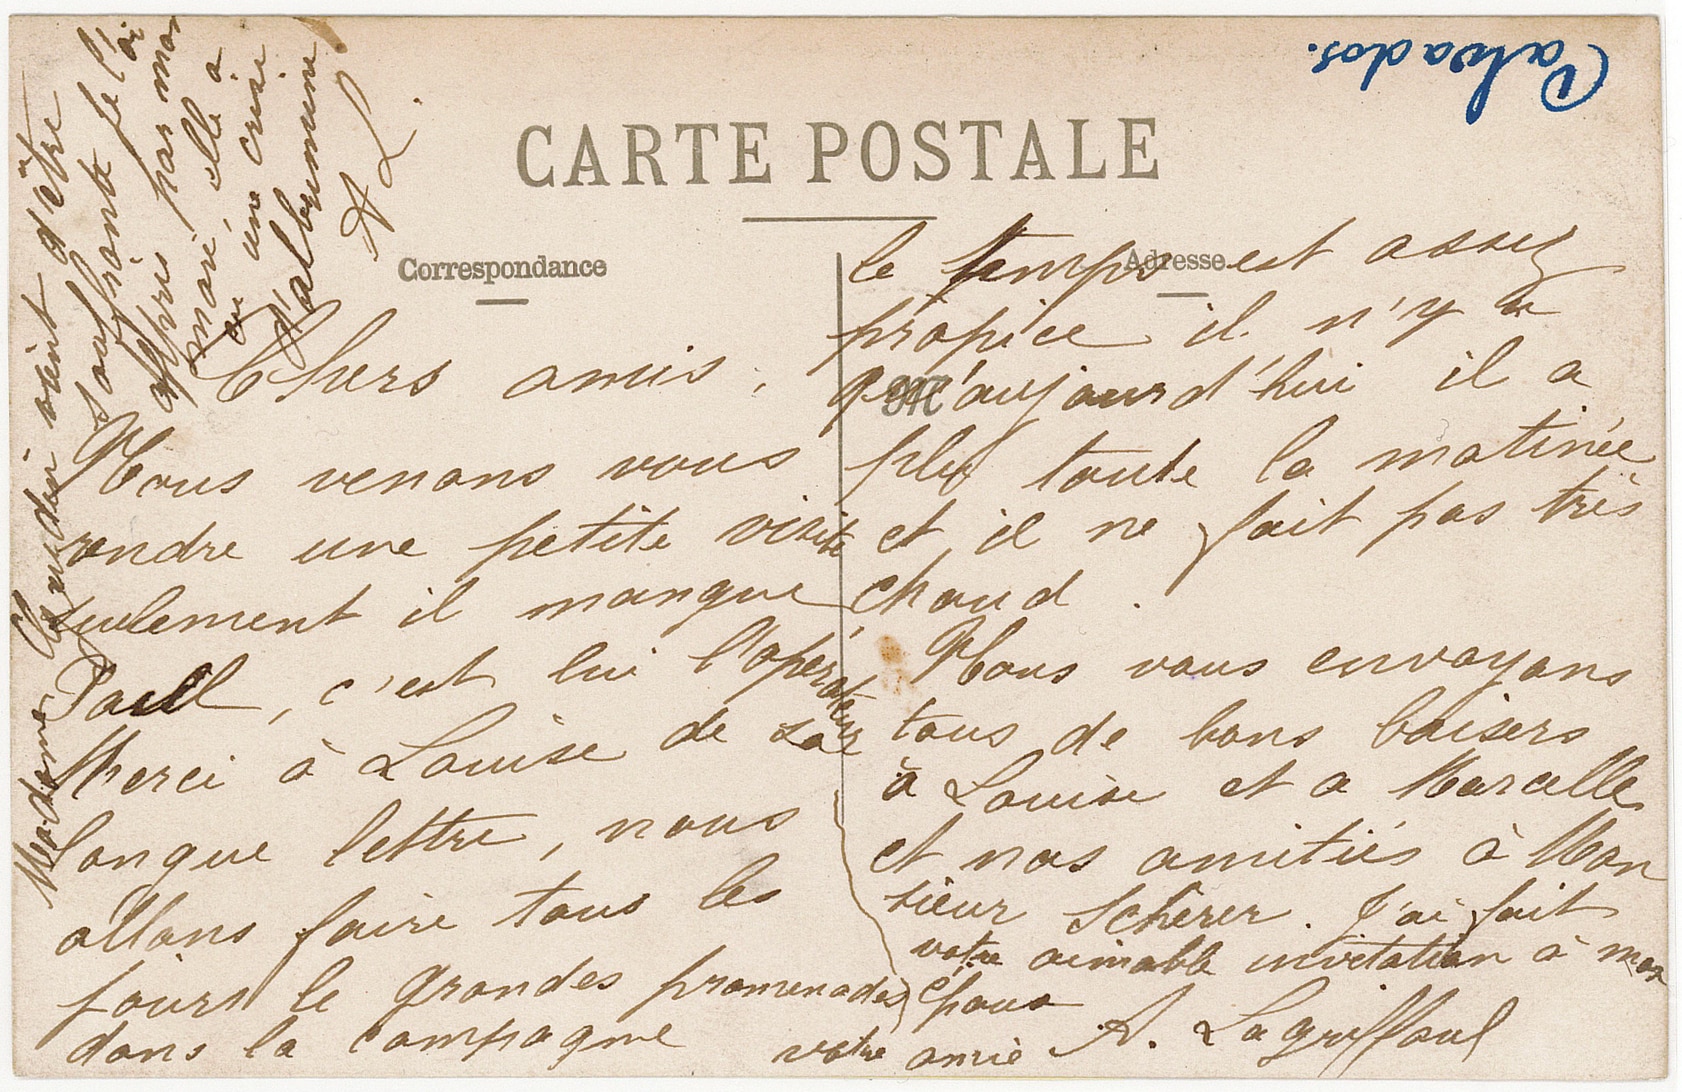 Calvados.
CARTE POSTALE
Correspondance
Adresse
Chers amis,
Nous venons vous
rendre une petite visite
seulement il manque
Paul, c'est lui l'opérateur
Merci à Louise de sa
longue lettre, nous
allons faire tous les
jours de grandes promenades
dans la campagne
le temps est assez
propice il n'y a
qu'aujourd'hui il a
plu toute la matinée
et il ne fait pas très
chaud.
Nous vous envoyons
tous de bons baisers
à Louise et a Marcelle
et nos amitiés à Mon
sieur Scherer. J'ai fait
votre aimable invitation à mon
époux
votre amie A. Lagriffoul
Madame vient d'être
souffrante je l'ai
appris par mon
mari elle a
eu une crise
d'albummine
A L